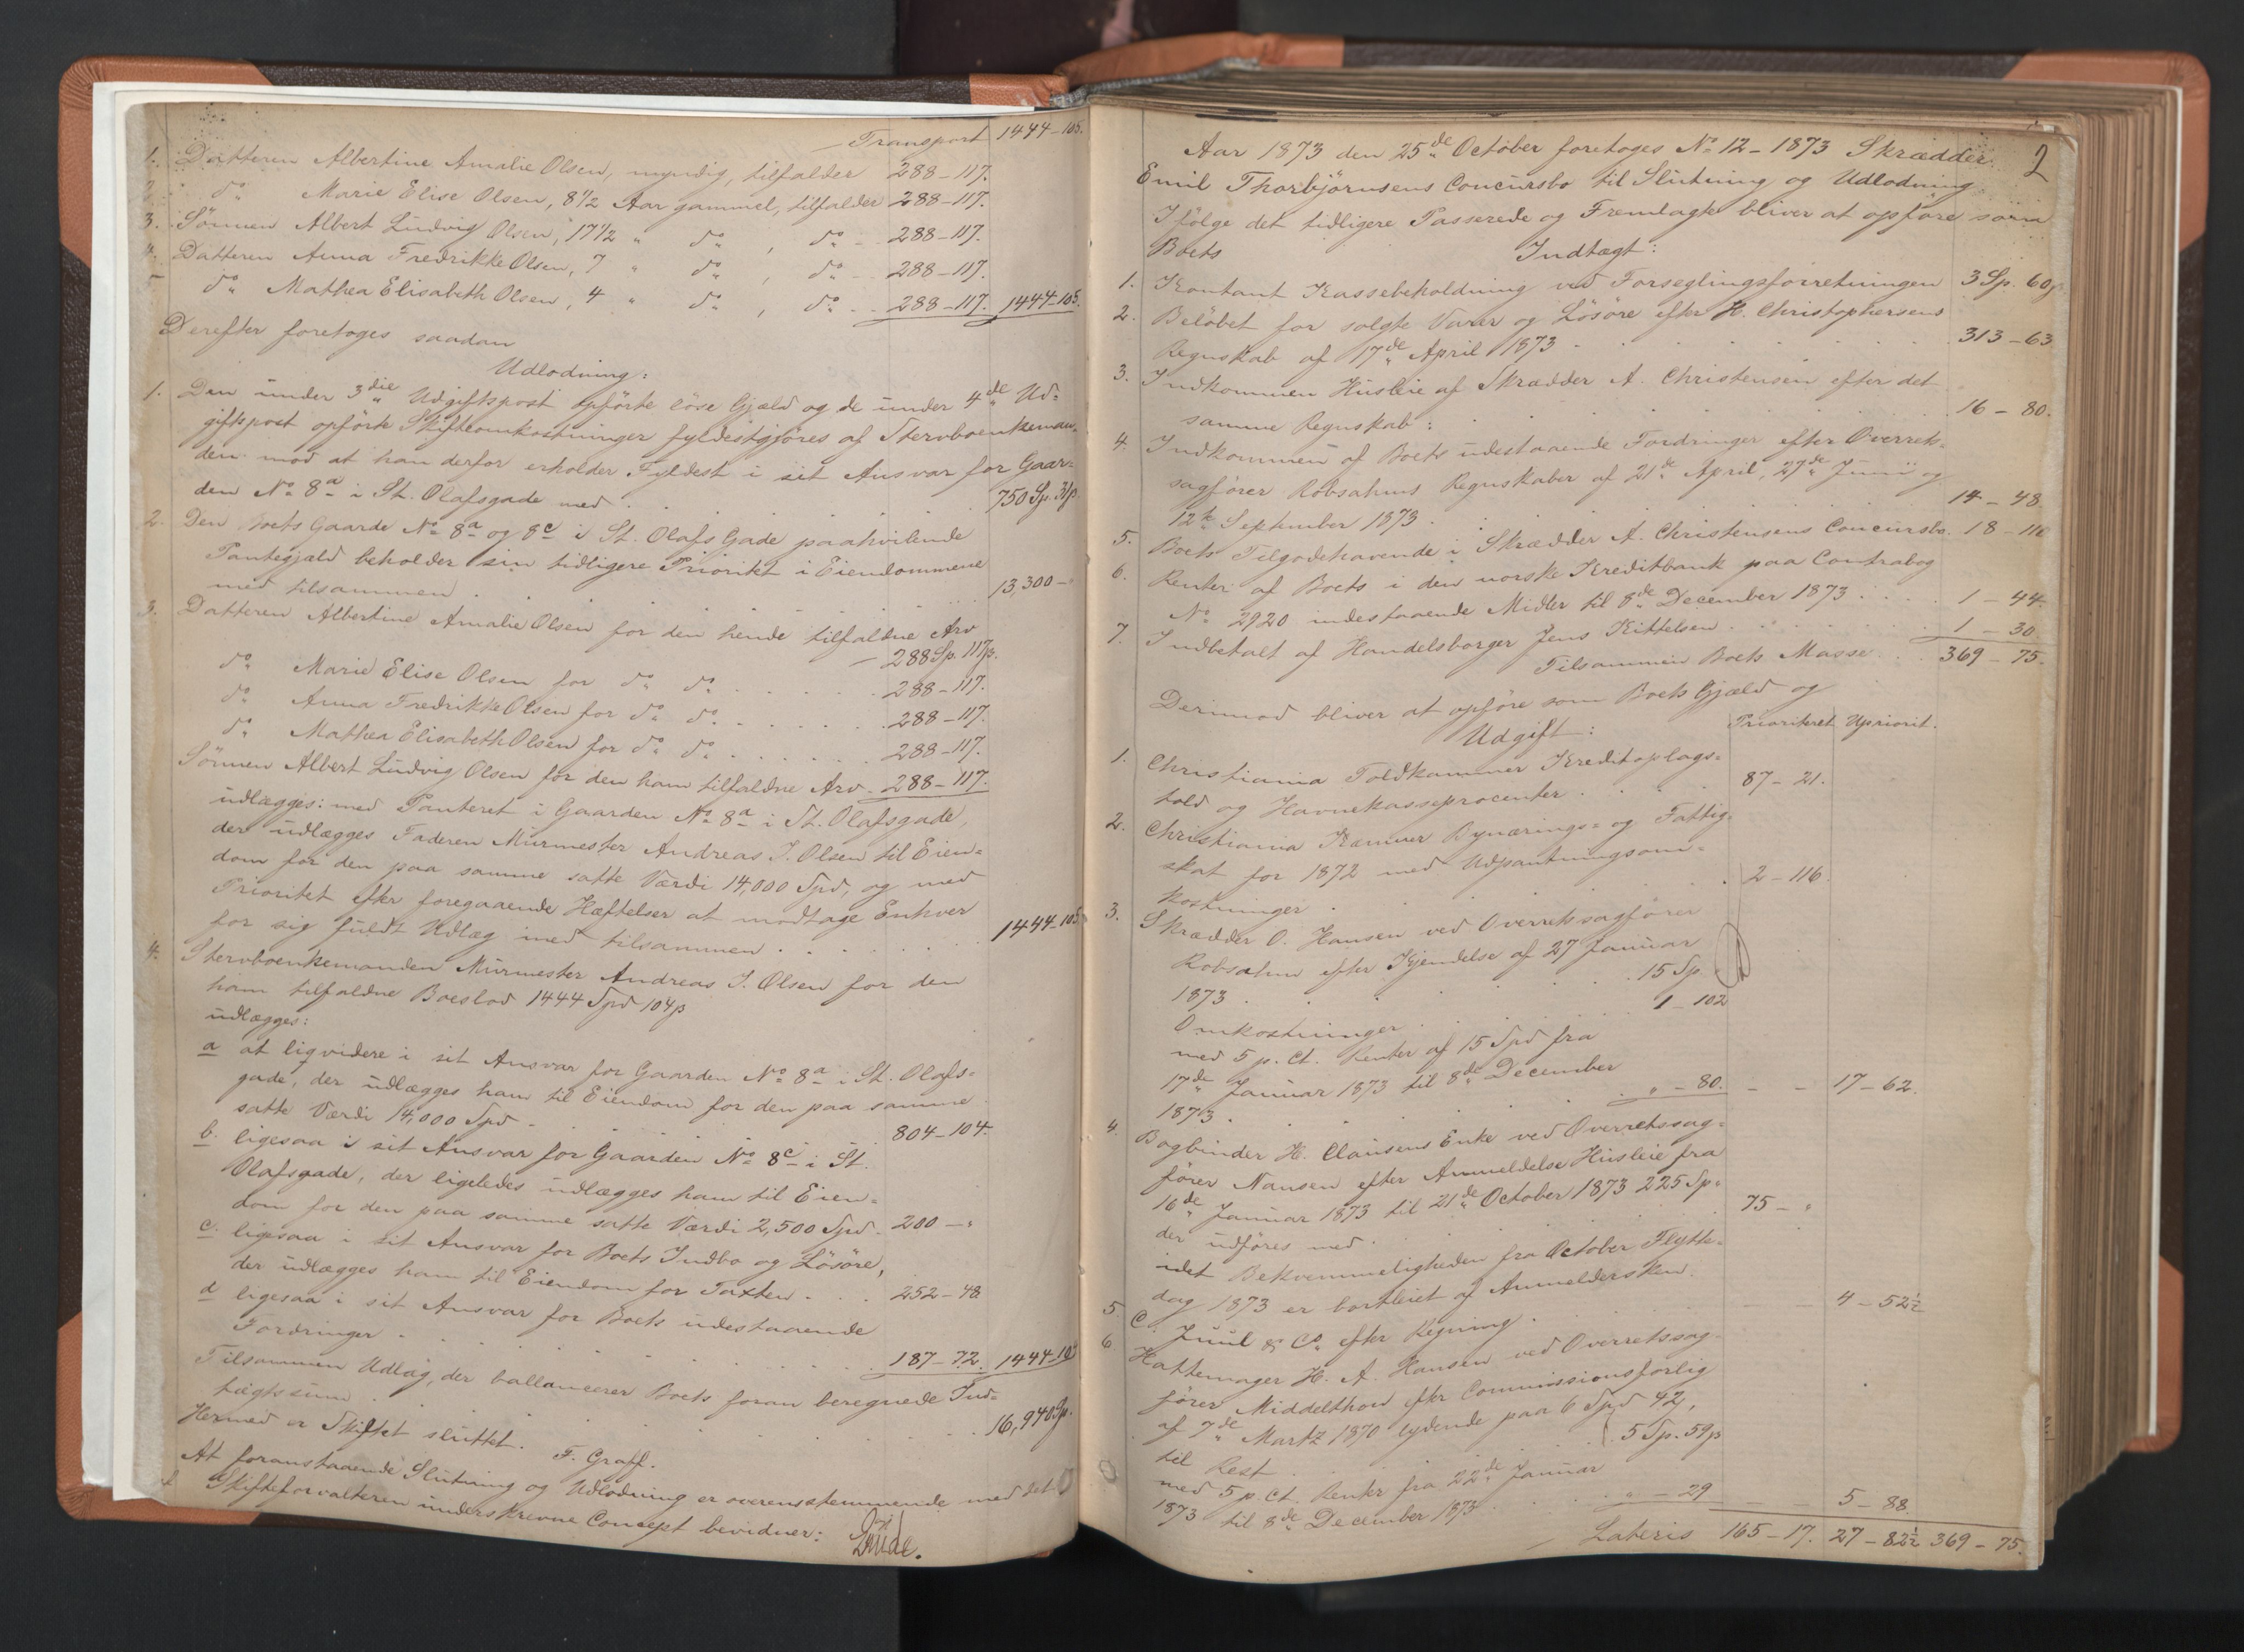 Transport 1444-105.
1. Datteren Albertine Amalie Olsen, myndig, tilfalder 288-117.
2. do Marie Elise Olsen, 8 1/2 Aar gammel, tilfalder 288-117.
3. Sönnen Albert Ludvig Olsen, 17 1/2 " do , do .. 288-117.
4. Datteren Anna Fredrikke Olsen, 7 " do , do .. 288-117.
5 do Mathea Elisabeth Olsen, 4 " do , do .. 288-117. 1444-105.
Derefter foretoges saadan
Udlodning:
1. Den under 3die Udgiftspost opförte löse Gjæld og de under 4de Ud=
giftspost opförte Skifteomkostninger fyldestgjöres af Stervboenkeman=
den mod at han derfor erholder Fyldest i sit Ansvar for Gaar=
den No 8a i St. Olafsgade med . . . 750 Sp. 31β
2. Den Boets Gaarde No 8a og 8c i St. Olafs Gade paahvilende
Pantegjæld beholder sin tidligere Prioritet i Eiendommene
med tilsammen . . . 13,300 - "
3. Datteren Albertine Amalie Olsen for den hende tilfaldne Arv
288 Sp. 117β.
do Marie Elise Olsen for do do . . . 288-117.
do Anna Fredrikke Olsen for do do . . . 288-117.
do Mathea Elisabeth Olsen for do do . . . 288-117.
Sönnen Albert Ludvig Olsen for den ham tilfaldne Arv . 288-117.
udlægges: med Panteret i Gaarden No 8a i St. Olafsgade,
der udlægges Faderen Murmester Andreas J. Olsen til Eien=
dom for den paa samme satte Værdi 14,000 Spd, og med
Prioritet efter foregaaende Hæftelser at modtage Enhver
for sig fuldt Udlæg med tilsammen . . . 1444-105.
4. Stervboenkemanden Murmester Andreas J. Olsen for den
ham tilfaldne Boeslod 1444 Spd 104β
udlægges:
a at liqvidere i sit Ansvar for Gaarden No 8a i St. Olafs=
gade, der udlægges ham til Eiendom for den paa samme
satte Værdi 14,000 Spd . . . 804-104.
b. ligesaa i sit Ansvar for Gaarden No 8c i St.
Olafsgade, der ligeledes udlægges ham til Eien=
dom for den paa samme satte Værdi 2,500 Spd . 200 - "
c. ligesaa i sit Ansvar for Boets Indbo og Lösöre,
der udlægges ham til Eiendom for Taxten . . . 252-48.
d ligesaa i sit Ansvar for Boets udestaaende
Fordringer . . . 187-72. 1444-104
Tilsammen Udlæg, der ballancerer Boets foran beregnede Ind=
tægtssum . . . 16,940 Sp.
Hermed er Skiftet sluttet. F. Graff.
At foranstaaende Slutning og Udlodning er overensstemmende med det
af Skifteforvalteren underskrevne Concept bevidner:
2
Aar 1873 den 25de October foretoges No 12-1873 Skrædder
Emil Thorbjörnsens Concursbo til Slutning og Udlodning.
Ifölge det tidligere Passerede og Fremlagte bliver at opföre som
Boets Indtægt:
1. Kontant Kassebeholdning ved Forseglingsforretningen 3 Sp. 60β
2. Belöbet for solgte Varer og Lösöre efter H. Christophersens
Regnskab af 17de April 1873 . . . 313-63
3. Indkommen Husleie af Skrædder A. Christensen efter det
samme Regnskab: . . . 16-80.
4. Indkommen af Boets udestaaende Fordringer efter Overrets=
sagförer Robsahms Regnskaber af 21de April, 27de Junii og
12te September 1873 . . . 14-48.
5. Boets Tilgodehavende i Skrædder A. Christensens Concursbo . 18-110
6. Renter af Boets i den norske Kreditbank paa Contrabog
No 2920 indestaaende Midler til 8de December 1873 . . . 1-44.
7. Indbetalt af Handelsborger Jens Kittelsen . . . 1-30.
Tilsammen Boets Masse . . 369-75.
Derimod bliver at opföre som Boets Gjæld og
Udgift: Prioriteret Upriorit.
1. Christiania Toldkammer Kreditoplags=
told og Havnekasseprocenter . . . 87-21.
2. Christiania Kæmner Bynærings- og Fattig=
skat for 1872 med Udpantningsom=
kostninger . . . 2-116.
3. Skrædder O. Hansen ved Overretssagförer
Robsahm efter Kjendelse af 27 Januar
1873 . . . 15 Sp.
Omkostninger . . . 1-102
med 5 p. Ct. Renter af 15 Spd fra
17de Januar 1873 til 8de December
1873 . . . " - 80. - - 17-62.
4. Bogbinder H. Clausens Enke ved Overretssag=
förer Nansen efter Anmeldelse Husleie fra
16de Januar 1873 til 21de October 1873 225 Sp.
der udföres med . . . 75 - "
idet Bekvemmeligheden fra October Flytte=
dag 1873 er bortleiet af Anmeldersken.
5 C. Juul & Co efter Regning . . . 4-52 1/2
6. Hattemager H. A. Hansen ved Overretssag=
förer Middelthon efter Commissionsforlig
af 7de Martz 1870 lydende paa 6 Spd 42β,
til Rest . . . 5 Sp. 59β
med 5 p. Ct. Renter fra 22de Januar
1873 til 8de December 1873 . . . " - 29 - - 5-88.
Lateris 165-17. 27-82 1/2 369-75.